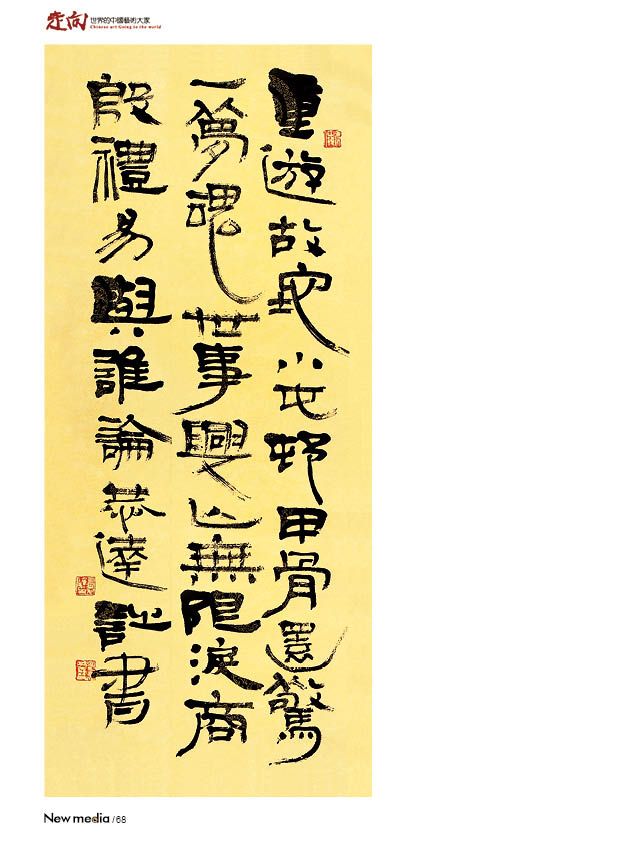 走向 世界的中國藝術大家
Chinese art Going to the world
重遊故小屯邨甲骨還驚
一夢魂世事興亡無限淚商
殷禮易與誰論恭達詩書
New media / 68